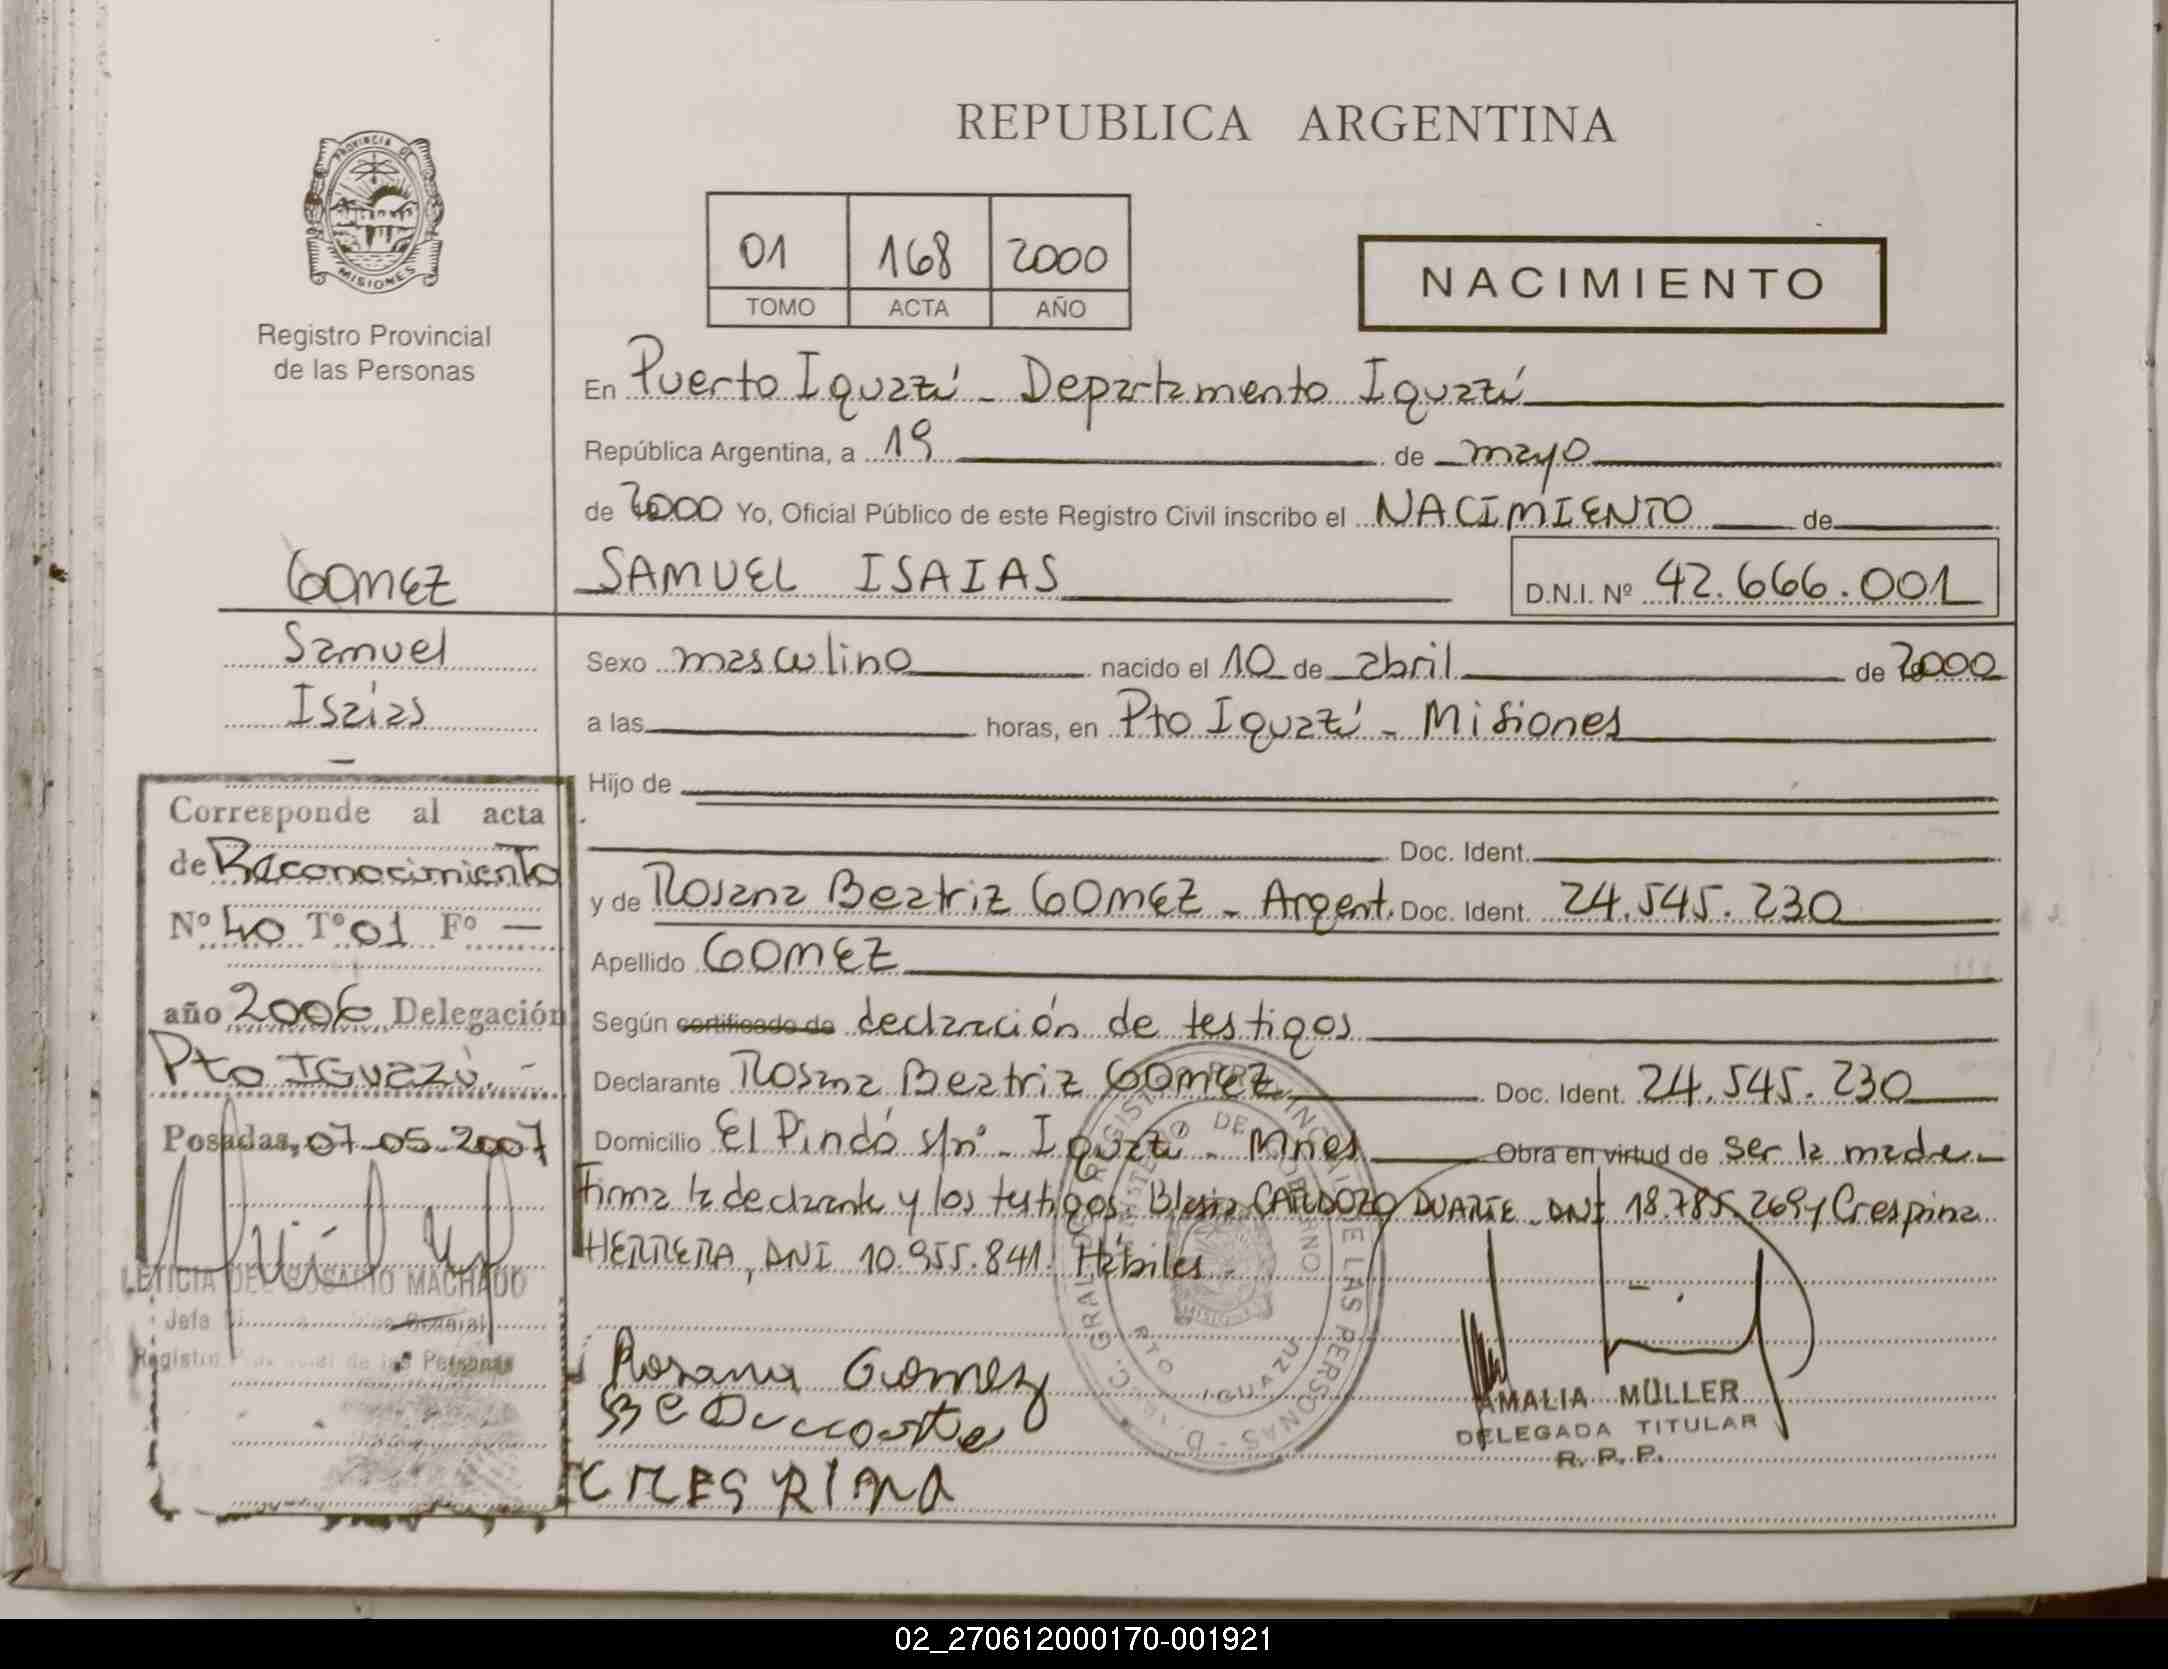 REPUBLICA ARGENTINA
PROVINCIA DE
MISIONES
Registro Provincial
de las Personas
01 168 2000
TOMO ACTA AÑO
NACIMIENTO
En Puerto Iguazú - Departamento Iguazú
República Argentina, a 19 de mayo
de 2000 Yo, Oficial Público de este Registro Civil inscribo el NACIMIENTO de
SAMUEL ISAIAS D.N.I. Nº 42.666.001
Sexo masculino nacido el 10 de abril de 2000
a las horas, en Pto Iguazú - Misiones
Hijo de
Doc. Ident.
y de Rosana Beatriz GOMEZ - Argent. Doc. Ident. 24.545.230
Apellido GOMEZ
Según certificado de declaración de testigos
Declarante Rosana Beatriz GOMEZ Doc. Ident. 24.545.230
Domicilio El Pindó s/nº - Iguazú - Mnes Obra en virtud de ser la madre -
Firma la declarante y los testigos Blasia CARDOZO DUARTE - DNI 18.785.269 y Crespina
HERRERA, DNI 10.955.841. Hábiles -
Rosana Gomez
AMALIA MÜLLER
DELEGADA TITULAR
R. P. P.
GOMEZ
Samuel
Isaias
-
Corresponde al acta
de Reconocimiento
Nº 40 Tº 01 Fº -
año 2006 Delegación
Pto IGUAZÚ. -
Posadas, 07-05-2007
LETICIA DEL ROSARIO MACHADO
Jefe
Registro Provincial de las Personas
PTO IGUAZU
02_270612000170-001921